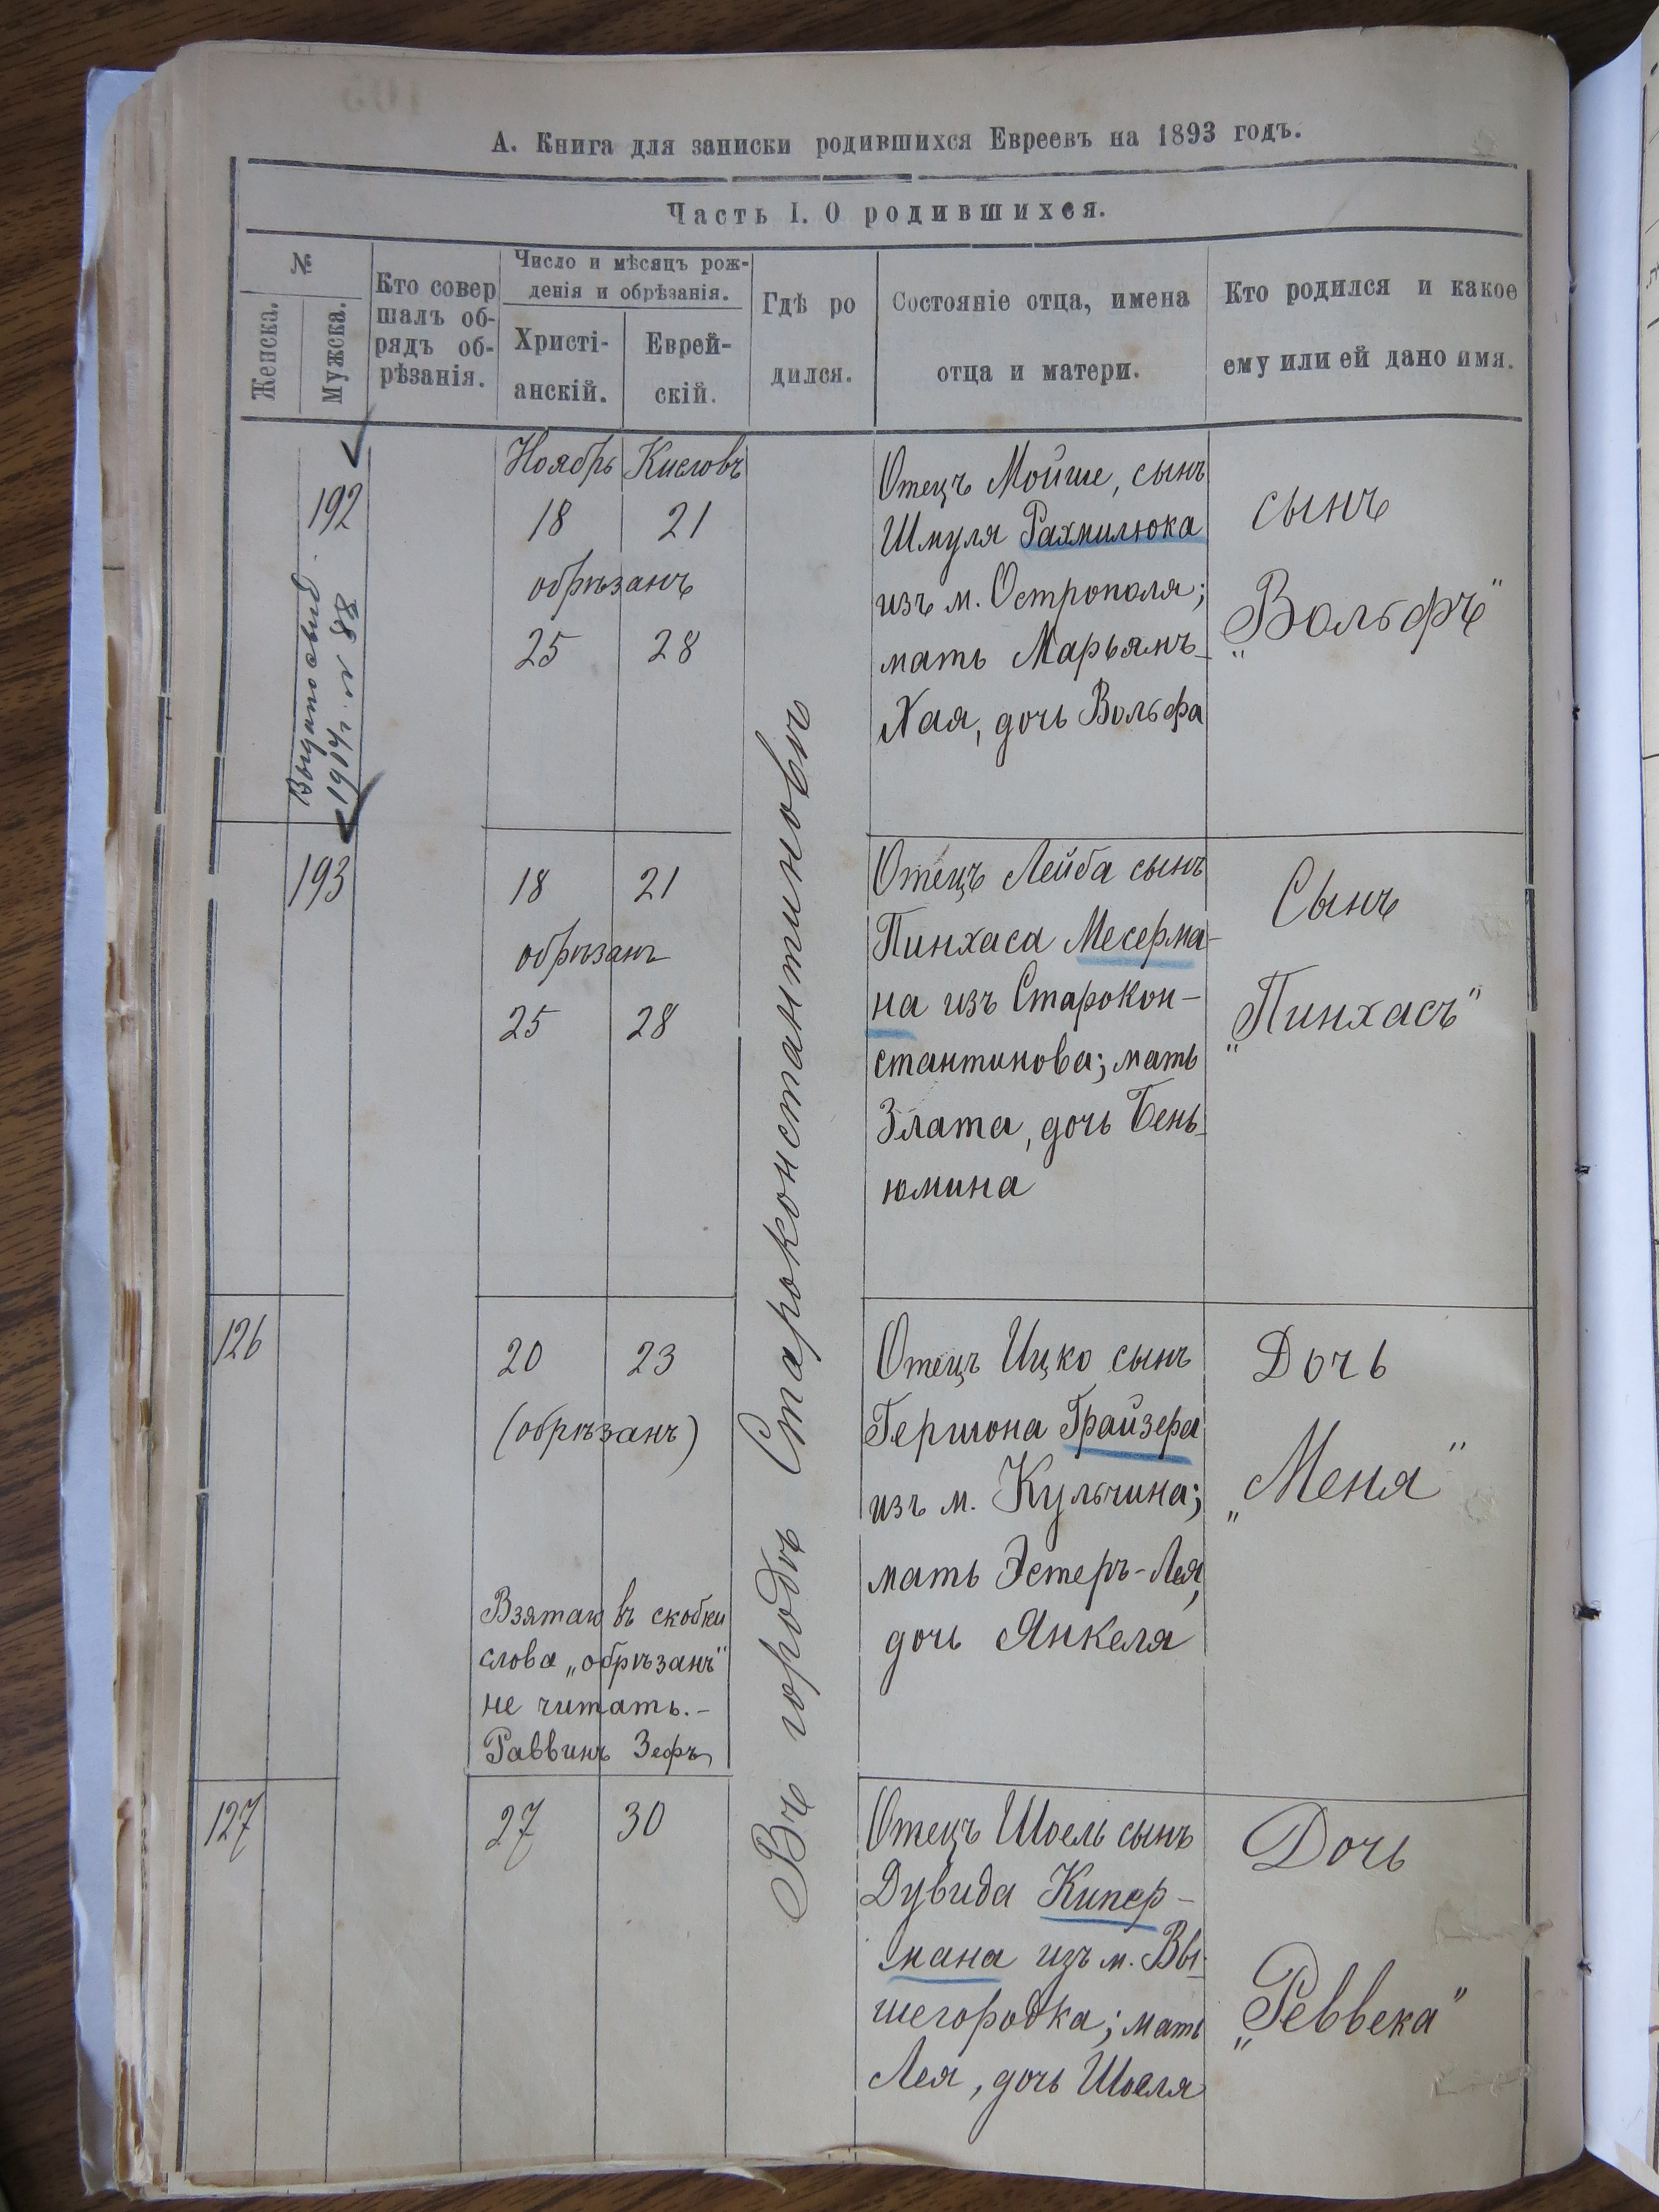 А. Книга для записки родившихся Евреевъ на 1893 годъ.
Часть I. О родившихся.
№
Женска.
Мужска.
Кто совер
шалъ об-
рядъ об-
рѣзанія.
Число и мѣсяцъ рож-
денія и обрѣзанія.
Христі-
анскій.
Еврей-
скій.
Гдѣ ро
дился.
Состояніе отца, имена
отца и матери.
Кто родился и какое
ему или ей дано имя.
192
Ноябрь Кисловъ
18 21
обрѣзанъ
25 28
Отецъ Мойше, сынъ
Шмуля Рахмилюка
изъ м. Острополя;
мать Марьямъ-
Хая, дочь Вольфа
сынъ
„Вольфъ"
193
18 21
обрѣзанъ
25 28
Отецъ Лейба сынъ
Пинхаса Месерма-
на изъ Старокон-
стантинова; мать
Злата, дочь Бень-
юмина
Сынъ
„Пинхасъ"
Въ городѣ Староконстантиновѣ
126
20 23
(обрѣзанъ)
Взятаго въ скобки
слова „обрѣзанъ"
не читать.-
Раввинъ Зефъ
Отецъ Ицко сынъ
Гершона Грайзера
изъ м. Кульчина;
мать Эстеръ-Лея,
дочь Янкеля
Дочь
„Меня"
127
27 30
Отецъ Шоель сынъ
Дувида Кипер-
мана изъ м. Вы-
шегородка; мать
Лея, дочь Шоеля
Дочь
„Реввека"